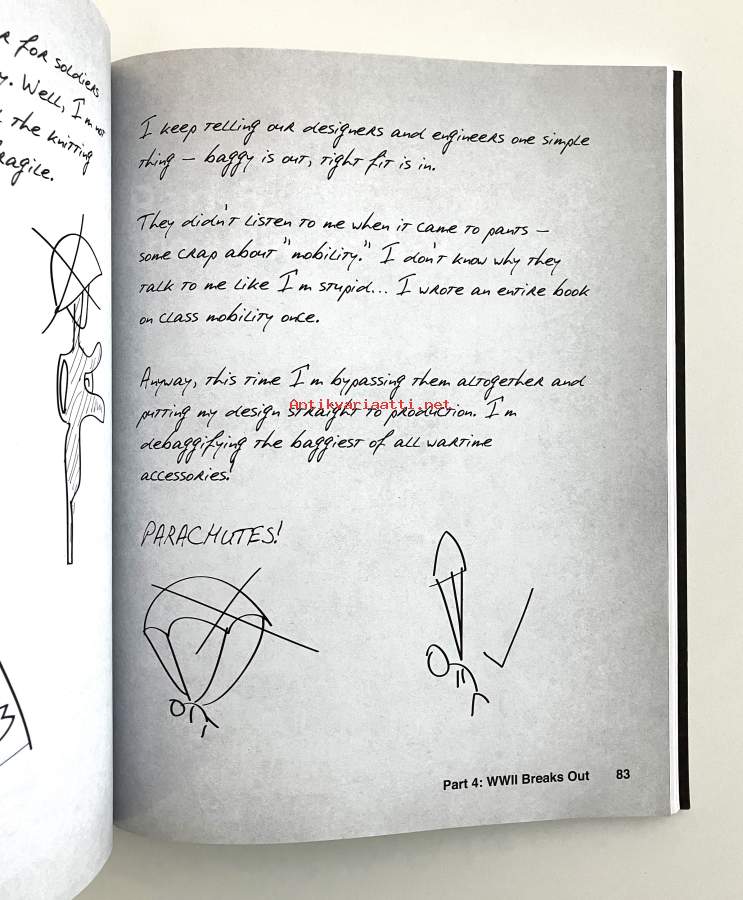 R FOR SOLDIERS
y. WELL, I'm not
THE KNITTING
RAGILE.
I keep telling our designers and engineers one simple
thing – baggy is out, tight fit is in.
They didn't listen to me when it came to pants –
some crap about "mobility." I don't know why they
talk to me like I'm stupid... I wrote an entire book
on class mobility once.
Anyway, this time I'm bypassing them altogether and
putting my design straight to production. I'm
Antikvariaatti.net
debaggifying the baggiest of all wartime
accessories!
PARACHUTES!
Part 4: WWII Breaks Out 83